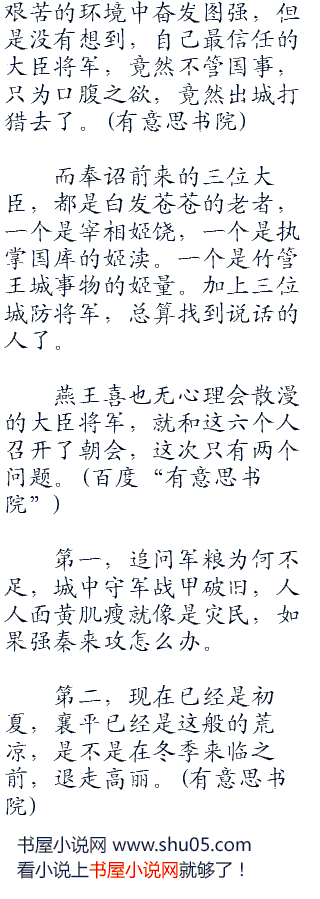 艰苦的环境中奋发图强，但
是没有想到，自己最信任的
大臣将军，竟然不管国事，
只为口腹之欲，竟然出城打
猎去了。(有意思书院)
而奉诏前来的三位大
臣，都是白发苍苍的老者，
一个是宰相姬饶，一个是执
掌国库的姬渎。一个是竹管
王城事物的姬量。加上三位
城防将军，总算找到说话的
人了。
燕王喜也无心理会散漫
的大臣将军，就和这六个人
召开了朝会，这次只有两个
问题。(百度“有意思书
院”)
第一，追问军粮为何不
足，城中守军战甲破旧，人
人面黄肌瘦就像是灾民，如
果强秦来攻怎么办。
第二，现在已经是初
夏，襄平已经是这般的荒
凉，是不是在冬季来临之
前，退走高丽。(有意思书
院)
书屋小说网 www.shu05.com
看小说上书屋小说网就够了！